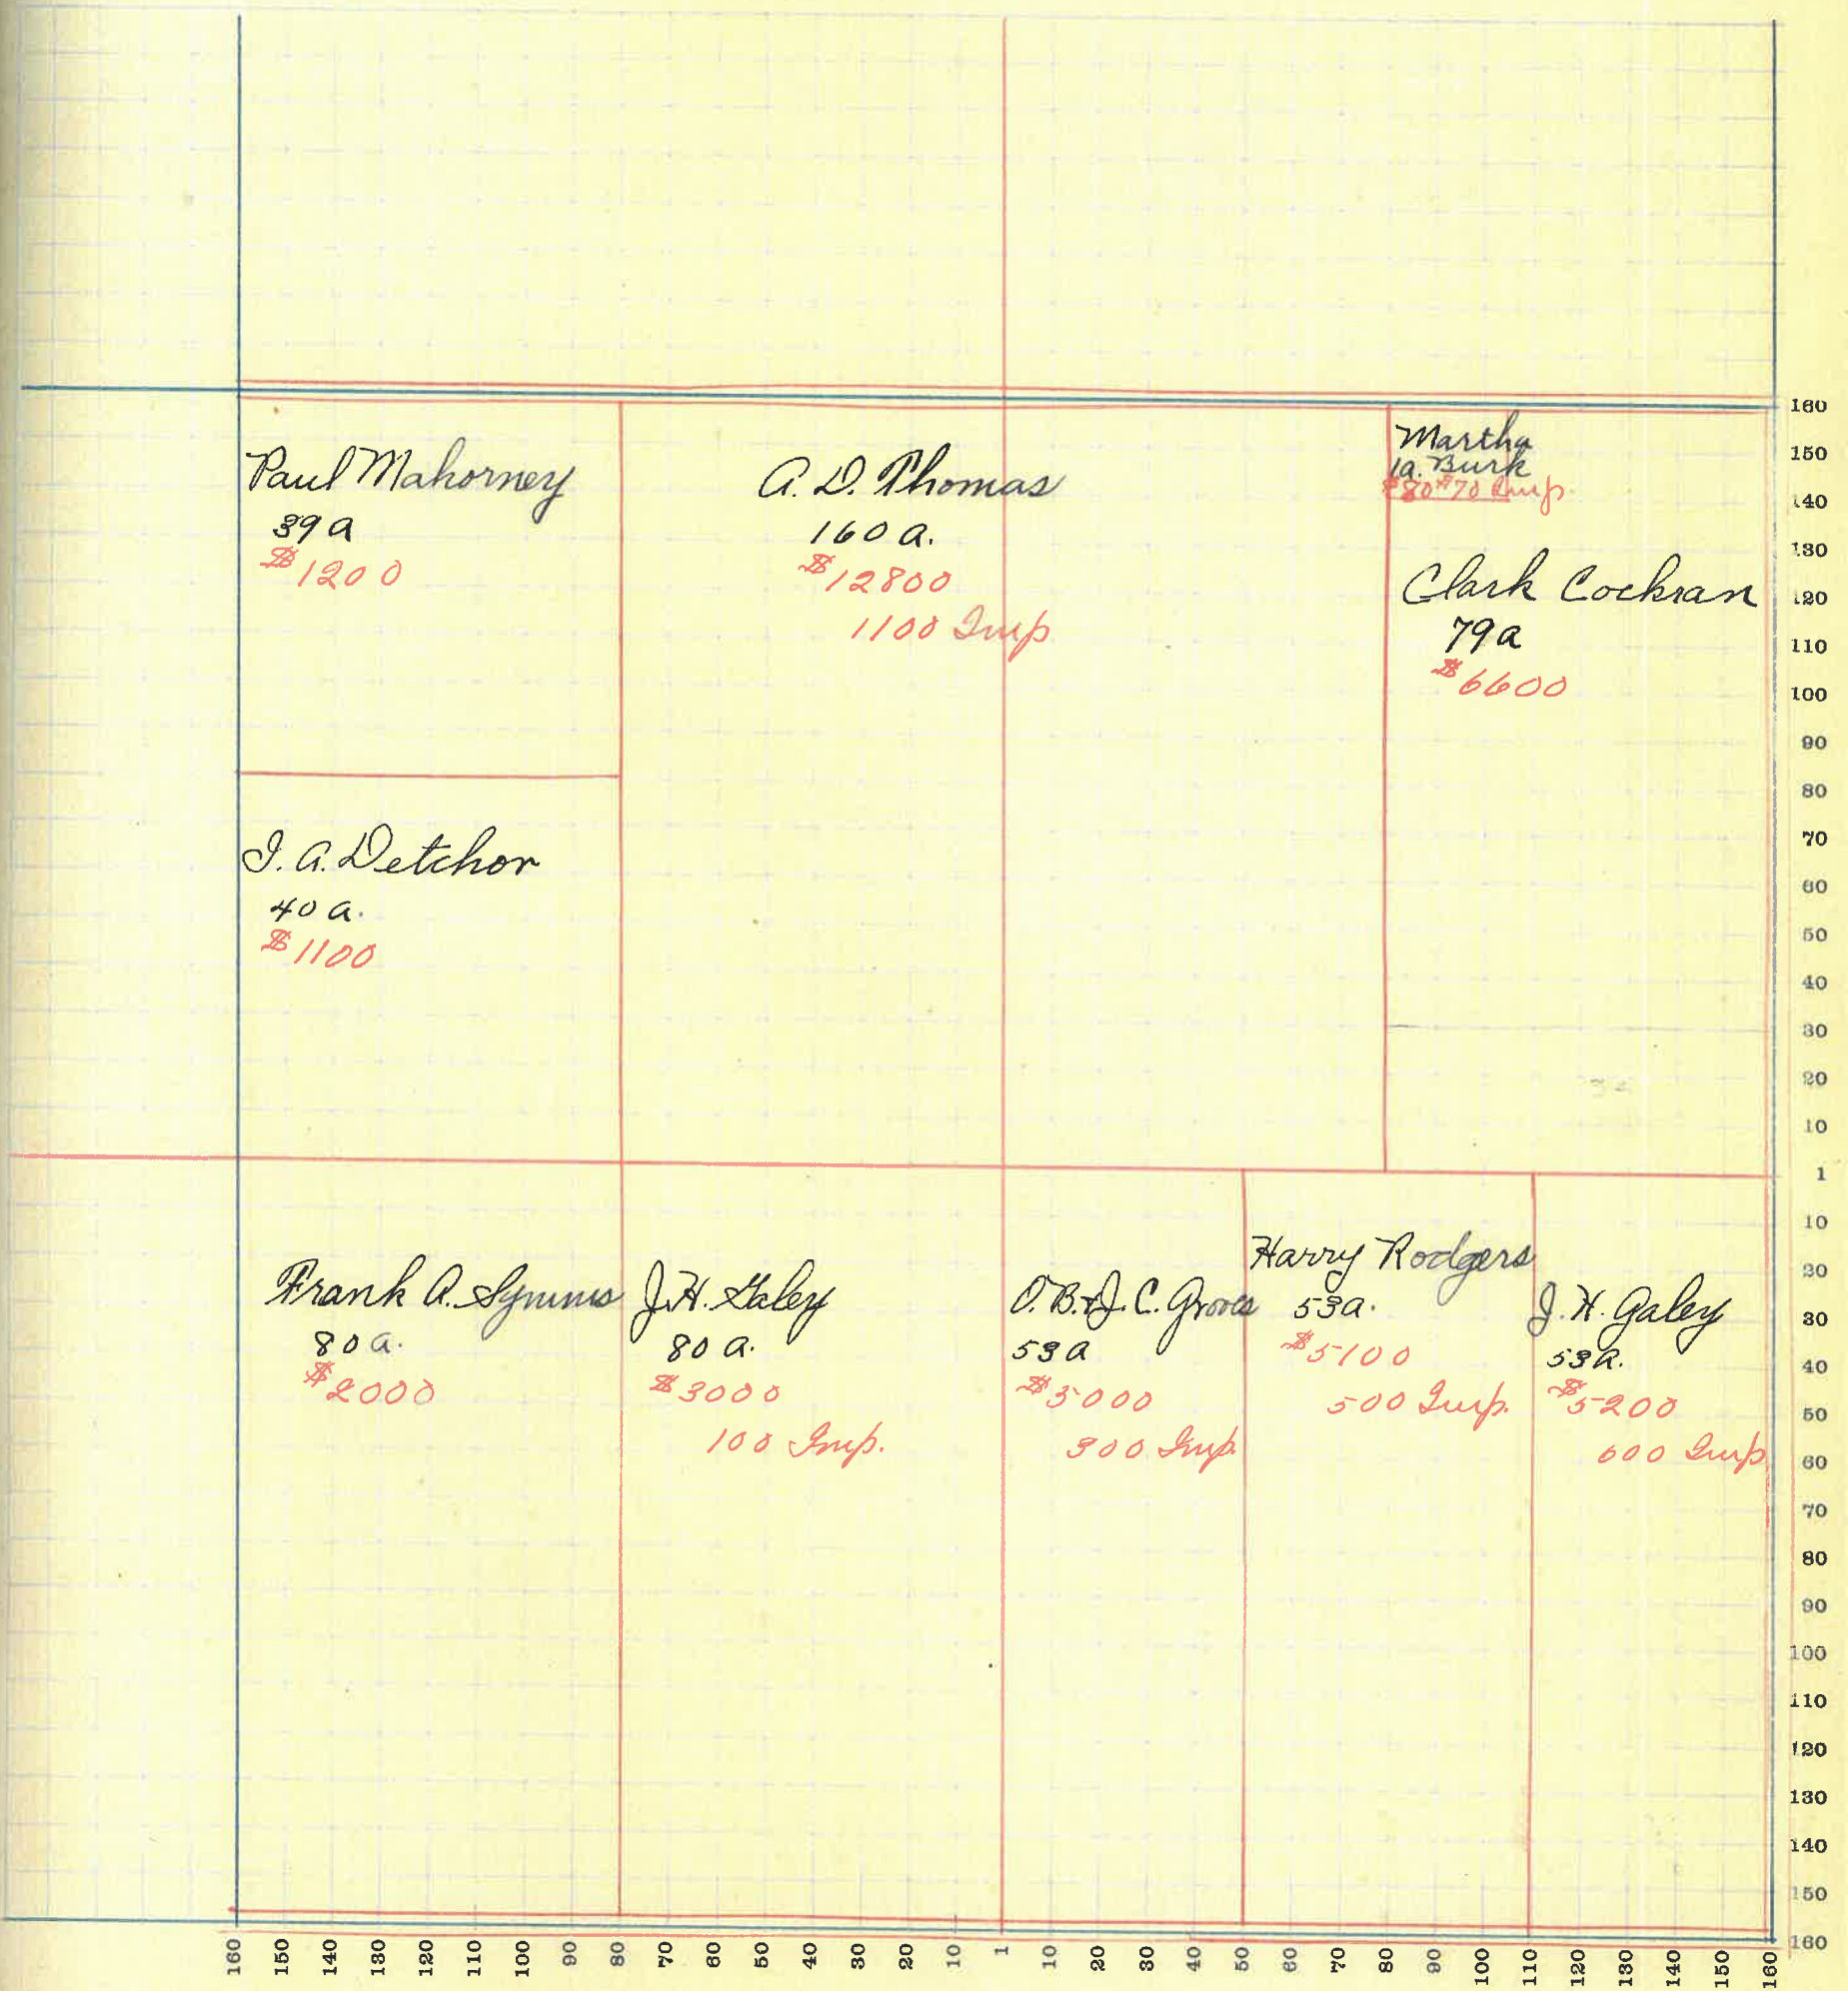 Paul Mahorney
39 a
$1200
A. D. Thomas
160 a.
$12800
1100 Imp
Martha
1a. Burk
$80 $70 Imp.
Clark Cochran
79 a
$6600
I. A. Detchor
40 a.
$1100
Frank A. Symms
80 a.
$2000
J. H. Galey
80 a.
$3000
100 Imp.
O. B. & J. C. Groves
53 a
$5000
300 Imp.
Harry Rodgers
53 a.
$5100
500 Imp.
J. H. Galey
53 a.
$5200
600 Imp
160
150
140
130
120
110
100
90
80
70
60
50
40
30
20
10
1
10
20
30
40
50
60
70
80
90
100
110
120
130
140
150
160
160 150 140 130 120 110 100 90 80 70 60 50 40 30 20 10 1 10 20 30 40 50 60 70 80 90 100 110 120 130 140 150 160